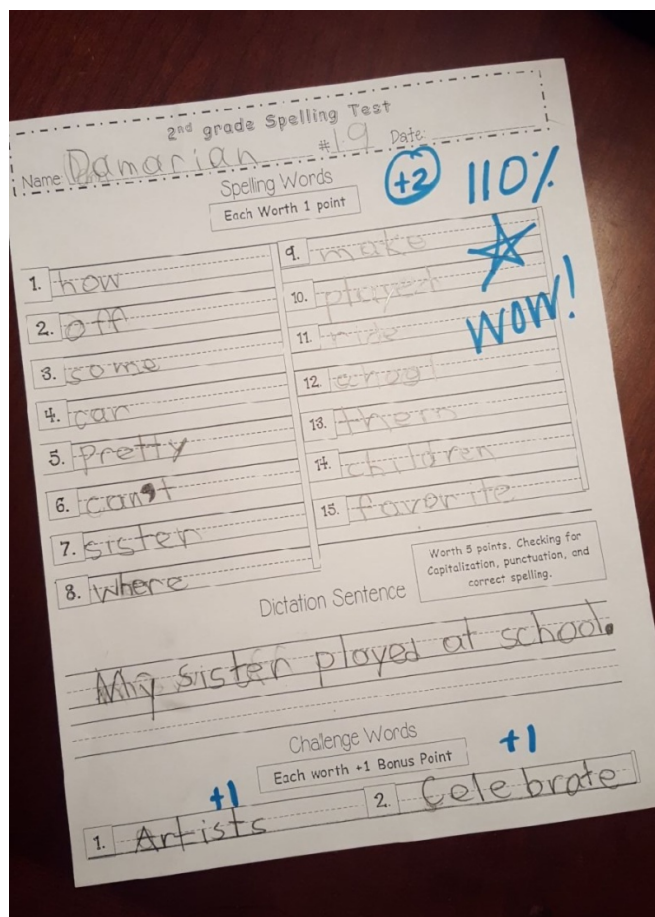 2nd grade Spelling Test
Name: Damarian #19 Date:
+2 110%
Spelling Words
Each Worth 1 point
WOW!
1. how
2. off
3. some
4. car
5. pretty
6. can't
7. sister
8. where
9. make
10. played
11. ride
12.
13. them
14. children
15. favorite
Worth 5 points. Checking for
Capitalization, punctuation, and
correct spelling.
Dictation Sentence
My sister played at school.
Challenge Words
Each worth +1 Bonus Point
+1 +1
1. Artists 2. Celebrate